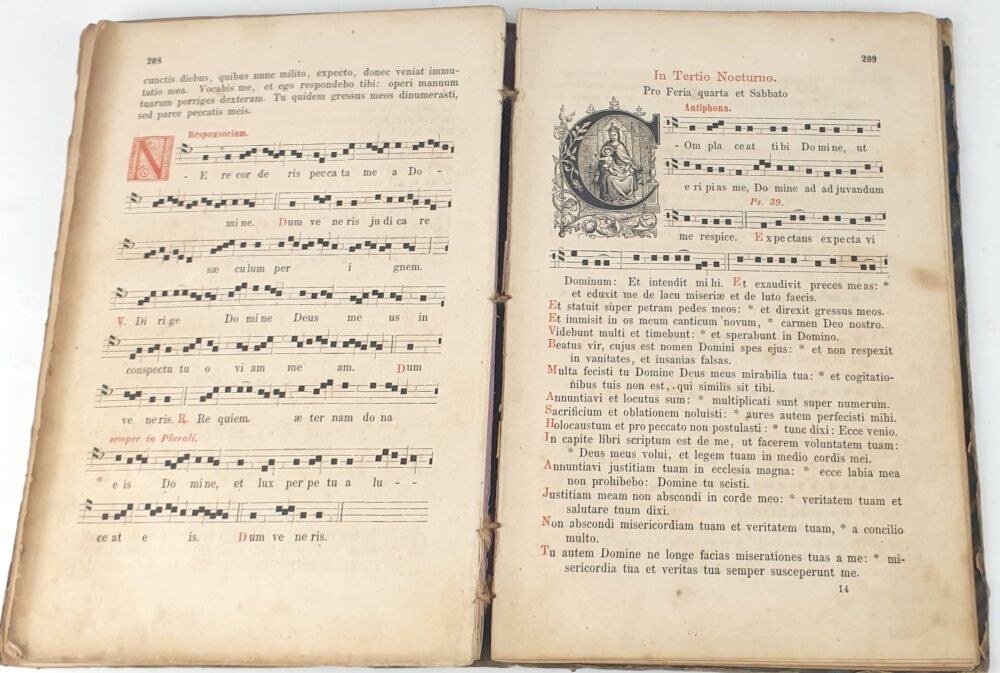 208
cunctis diebus, quibus nunc milito, expecto, donec veniat immu-
tatio mea. Vocabis me, et ego respondebo tibi: operi manuum
tuarum porriges dexteram. Tu quidem gressus meos dinumerasti,
sed parce peccatis meis.
Responsorium.
N - E re cor de ris pec ca ta me a Do -
mi ne. Dum ve ne ris ju di ca re
sæ cu lum per i gnem.
V. Di ri ge Do mi ne Deus me us in
conspectu tu o vi am me am. Dum
ve ne ris. R. Re qui em. æ ter nam do na
semper in Plurali.
* e is Do mi ne, et lux per pe tu a lu - -
ce at e is. Dum ve ne ris.
209
In Tertio Nocturno.
Pro Feria quarta et Sabbato
Antiphona.
C - Om pla ce at ti bi Do mi ne, ut
e ri pi as me, Do mi ne ad ad ju van dum
Ps. 39.
me re spi ce. E x pe c tans ex pe cta vi
Dominum: Et intendit mi hi. Et exaudivit preces meas: *
et eduxit me de lacu miseriæ et de luto faecis.
Et statuit super petram pedes meos: * et direxit gressus meos.
Et immisit in os meum canticum novum, * carmen Deo nostro.
Videbunt multi et timebunt: * et sperabunt in Domino.
Beatus vir, cujus est nomen Domini spes ejus: * et non respexit
in vanitates, et insanias falsas.
Multa fecisti tu Domine Deus meus mirabilia tua: * et cogitatio-
nibus tuis non est, qui similis sit tibi.
Annuntiavi et locutus sum: * multiplicati sunt super numerum.
Sacrificium et oblationem noluisti: * aures autem perfecisti mihi.
Holocaustum et pro peccato non postulasti: * tunc dixi: Ecce venio.
In capite libri scriptum est de me, ut facerem voluntatem tuam:
* Deus meus volui, et legem tuam in medio cordis mei.
Annuntiavi justitiam tuam in ecclesia magna: * ecce labia mea
non prohibebo: Domine tu scisti.
Justitiam meam non abscondi in corde meo: * veritatem tuam et
salutare tuum dixi.
Non abscondi misericordiam tuam et veritatem tuam, * a concilio
multo.
Tu autem Domine ne longe facias miserationes tuas a me: * mi-
sericordia tua et veritas tua semper susceperunt me.
14